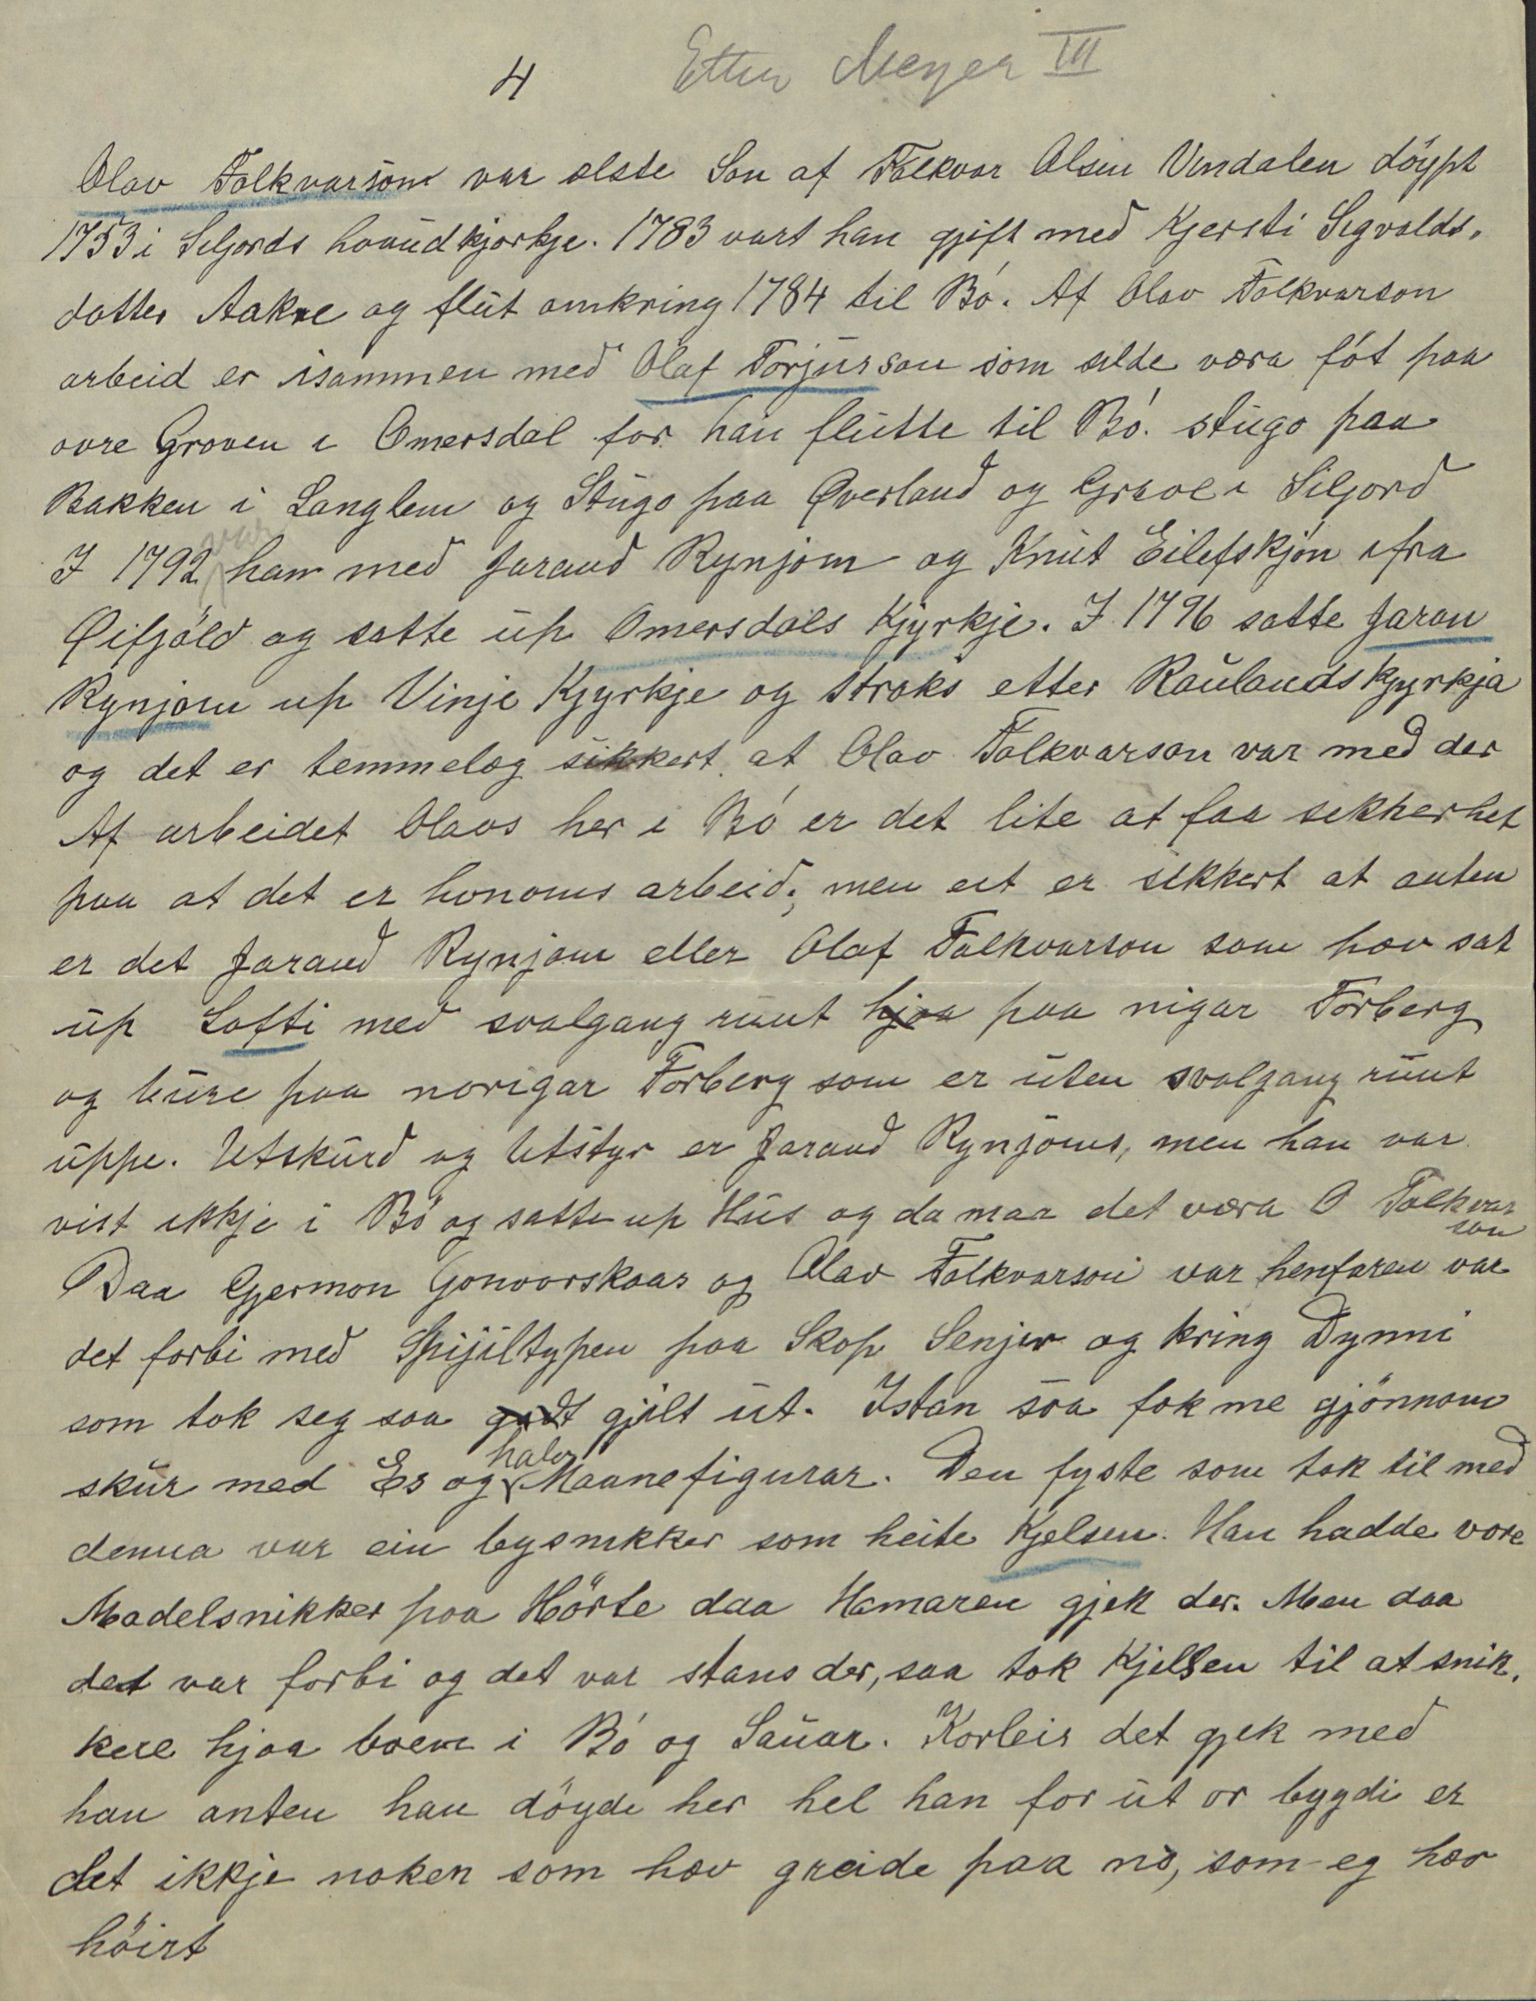 4 Etter Meyer III
Olav Folkvarson var elste Son af Folkvar Olsen Vindalen döypt
1753 i Seljords hovudkjorkje. 1783 vart han gjift med Kjersti Sigvalds-
dotter Aakre og flut omkring 1784 til Bó. Af Olav Folkvarson
arbeid er isammen med Olaf Torjusson som selde væra fót paa
ovre Groven i Omersdal for han flutte til Bó. stugo paa
Bakken i Langlem og Stugo paa Øverland og Grave i Siljord
I 1792 var han med Jarand Rynjom og Knut Eilefskjón ifra
Øifjóld og satte up Omersdals Kjyrkje. I 1796 satte Jaran
Rynjom up Vinje Kjyrkje og straks etter Raulands Kjyrkja
og det er temmeleg sikkert at Olav Folkvarson var med der
Af arbeidet Olavs her i Bó er det lite at faa sekkerhet
paa at det er honoms arbeid; men eit er sikkert at anten
er det Jarand Rynjom eller Olaf Folkvarson som hæv sat
up Lofti med svalgang runt hjaa paa nigar Forberg
og bure paa norigar Forberg som er uten svalgang runt
uppe. Utskurd og Utstyr er Jarand Rynjoms, men han var
vist ikkje i Bó og satte up Hus og da maa det væra O Folkvar
son
Daa Gjermon Gonvorskaas og Olav Folkvarson var henfaren var
det forbi med Spijiltypen paa Skop Senjer og kring Dynni
som tok seg saa godt gjilt ut. Istan saa fok me gjönnom
skur med Es og halv Maanefigurar. Den fyste som tok til med
denna var ein bysnikker som heite Kjelsen. Han hadde vore
Madelsnikker paa Hörte daa Hamaren gjek der. Men daa
det var forbi og det var stans der, saa tok Kjelsen til at snik-
kere hjaa boem i Bó og Sauar. Korleis det gjek med
han anten han döyde her hel han for ut or bygdi er
det ikkje noken som hæv greide paa no, som eg hæv
höirt